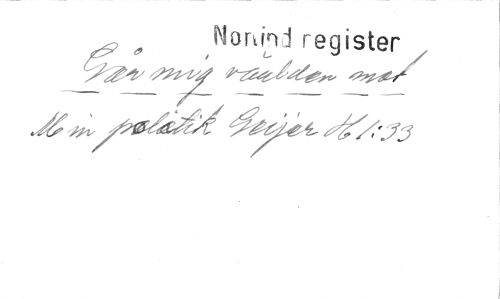 Nonind register
Går mig världen mot
Min politik Geijer H 1:33